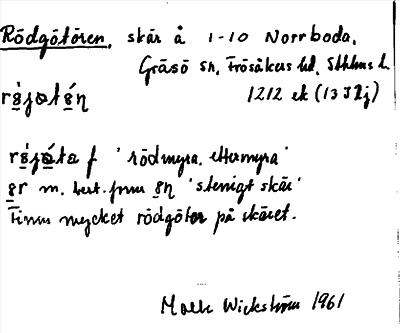 Rödgötören, skär å 1-10 Norrboda,
Gräsö sn, Frösåkers hd, Sthlms l.
1212 ek (13I 2j)
rö̀jøtén
rö̀jǿta f 'rödmyra, ettermyra'
ör m. best. form öņ 'stenigt skär'
Finns mycket rödgötor på skäret.
Wickström 1961